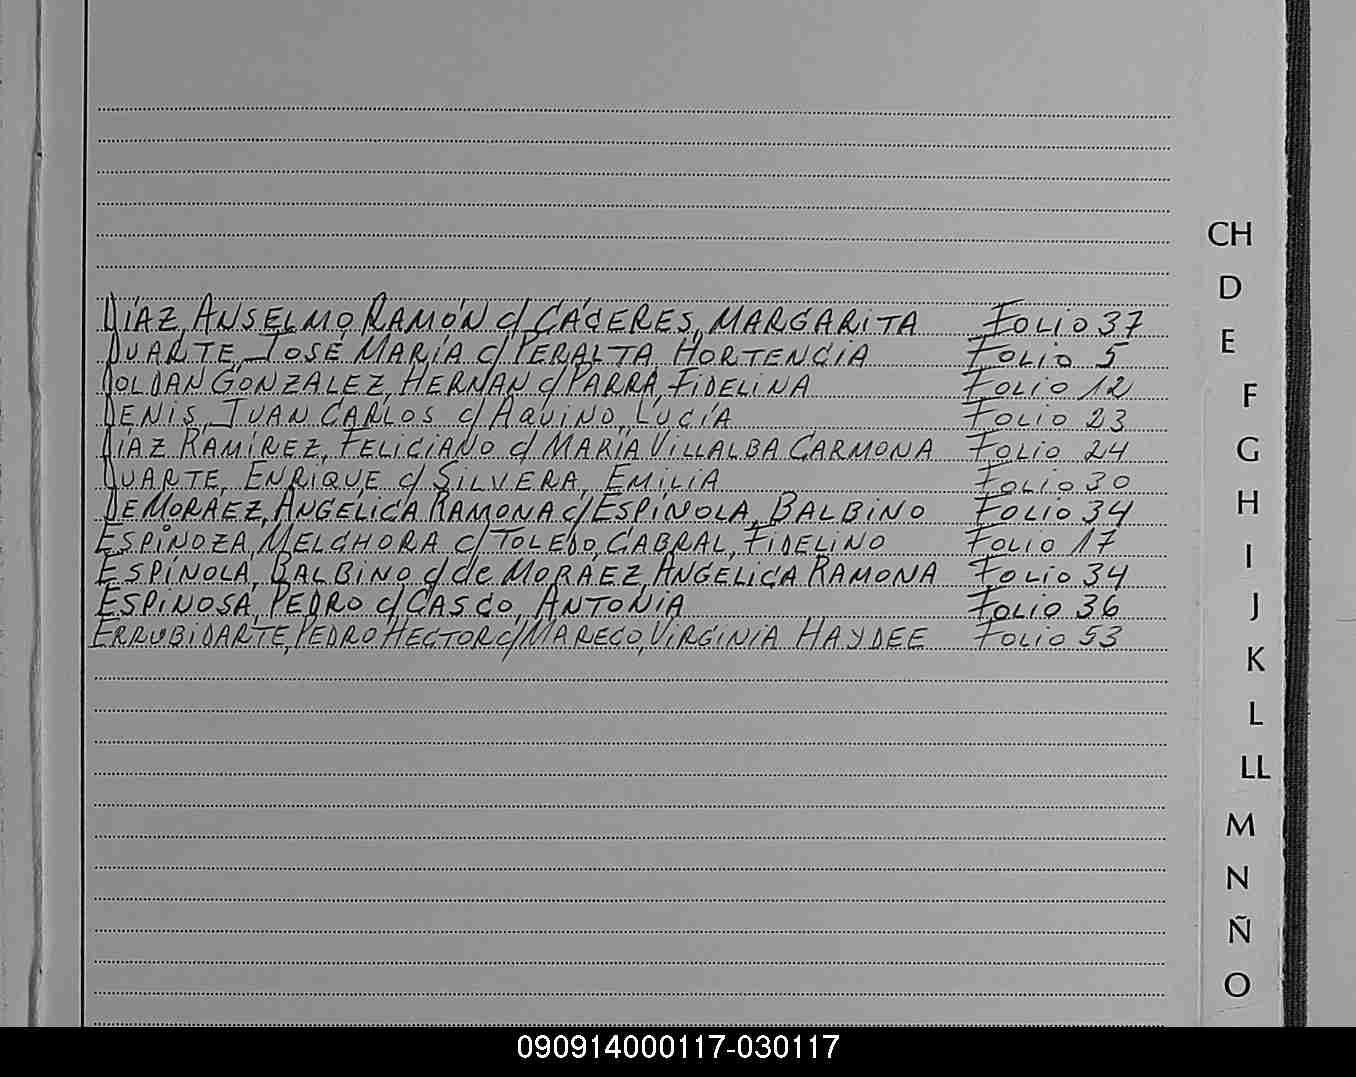 DÍAZ, ANSELMO RAMÓN c/ CÁCERES, MARGARITA Folio 37
DUARTE, JOSÉ MARÍA c/ PERALTA HORTENCIA Folio 5
DOLDAN GONZALEZ, HERNAN c/ PARRA, FIDELINA Folio 12
DENIS, JUAN CARLOS c/ AQUINO, LUCÍA Folio 23
DÍAZ RAMÍREZ, FELICIANO c/ MARÍA VILLALBA CARMONA Folio 24
DUARTE, ENRIQUE c/ SILVERA, EMILIA Folio 30
DE MORAEZ, ANGÉLICA RAMONA c/ ESPÍNOLA, BALBINO Folio 34
ESPINOZA, MELCHORA c/ TOLEDO, CABRAL, FIDELINO Folio 17
ESPÍNOLA, BALBINO c/ de MORAEZ, ANGELICA RAMONA Folio 34
ESPINOSA, PEDRO c/ CASCO, ANTONIA Folio 36
ERRUBIDARTE, PEDRO HECTOR c/ MARECO, VIRGINIA HAYDEE Folio 53
CH
D
E
F
G
H
I
J
K
L
LL
M
N
Ñ
O
090914000117-030117